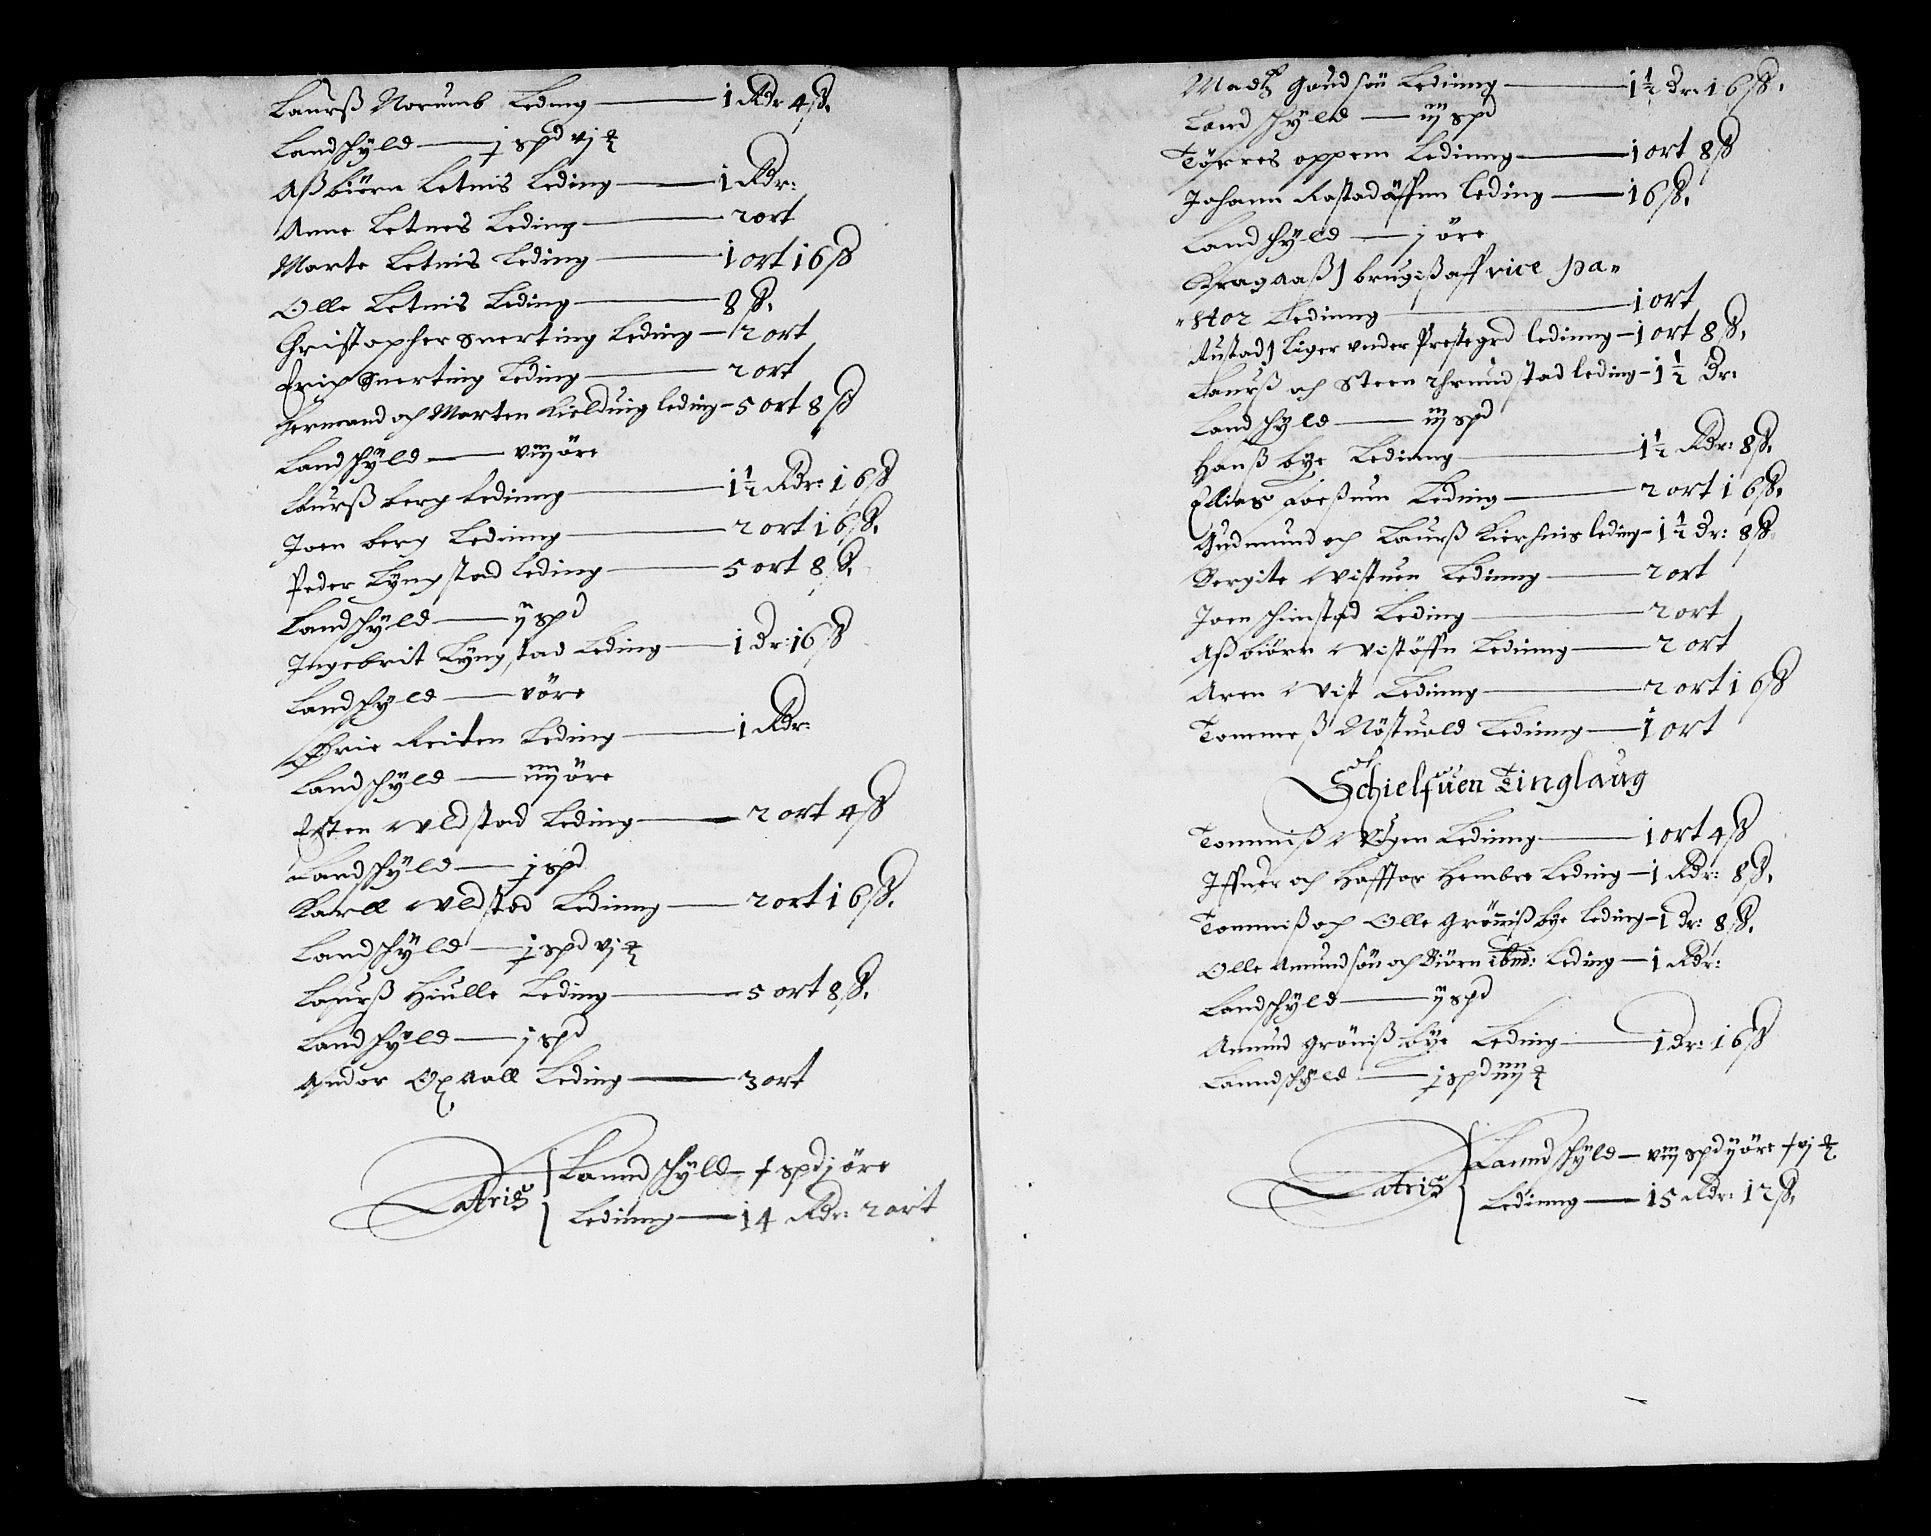 Laurß Norumb Leding — 1 Rdr 4 ß.
Landschyld — j spd vj ♃
Aßbiörn Letnis Leding — 1 Rdr:
Anne Letnes Leding — 2 ort
Marte Letnis Leding — 1 ort 16 ß
Olle Letnis Leding — 8 ß.
Christopher Snerting Leding — 2 ort
Erich Snerting Leding — 2 ort
Hermand och Morten Kieldung leding — 5 ort 8 ß
Landschyld — viij öre
Laurß berg leding — 1½ Rdr: 16 ß
Joen berg Leding — 2 ort 16 ß.
Peder Lyngstad leding — 5 ort 8 ß.
Landschyld — ij spd
Ingebrit Lyngstad Leding — 1 dr: 16 ß
Landschyld — v öre
Reiten Leding — 1 Rdr:
Landschyld — iiij öre
Esten Vldstad Leding — 2 ort 4 ß
Landschyld — j spd
Karll Vldstad Leding — 2 ort 16 ß.
Landschyld — j spd vj ♃
Laurß Hiulle Leding — 5 ort 8 ß.
Landschyld — j spd
Andor Oxaall Leding — 3 ort
Latris { Lanndschyld — x spd j öre
Leding — 14 Rdr: 2 ort
Madtz Gaudsøn Leding — 1½ dr: 16 ß.
Landschyld — iij spd
Törres oppem Leding — 1 ort 8 ß
Johann Rostadöffnn leding — 16 ß.
Landschyld — j öre
Kragaaß] brugiß aff vice pa=
=stor Leding — 1 ort
Rustad] liger vnder Prestegrd leding — 1 ort 8 ß.
Laurß och Steen Thrundstad leding — 1½ dr:
Landschyld — iij spd
Hanß bye Leding — 1½ Rdr: 8 ß.
Ellias Loeßum Leding — 2 ort 16 ß.
Gudmund och Laurß Kierknis leding — 1½ dr: 8 ß
Bergite Vistuen Leding — 2 ort
Joen schinstad Leding — 2 ort
Aßbiörn Vistöffn Leding — 2 ort
Aren Vist Leding — 2 ort 16 ß
Tommeß Nöstuold Leding — 1 ort
Schielfuen Tinglaug
Tommiß Vogen Leding — 1 ort 4 ß
Iffuer och Hafftor Hembre Leding — 1 Rdr: 8 ß.
Tommiß och Olle Grönniß bye leding — 1 dr: 8 ß.
Olle Amundsøn och Biörn ibid: Leding — 1 Rdr:
Landschyld — ij spd
Amund gröniß bye Leding — 1 dr: 16 ß
Lanndschyld — j spd iiij ♃
Latris { Lanndschyld — viij spd ij öre x vj ♃
Leding — 15 Rdr: 12 ß.